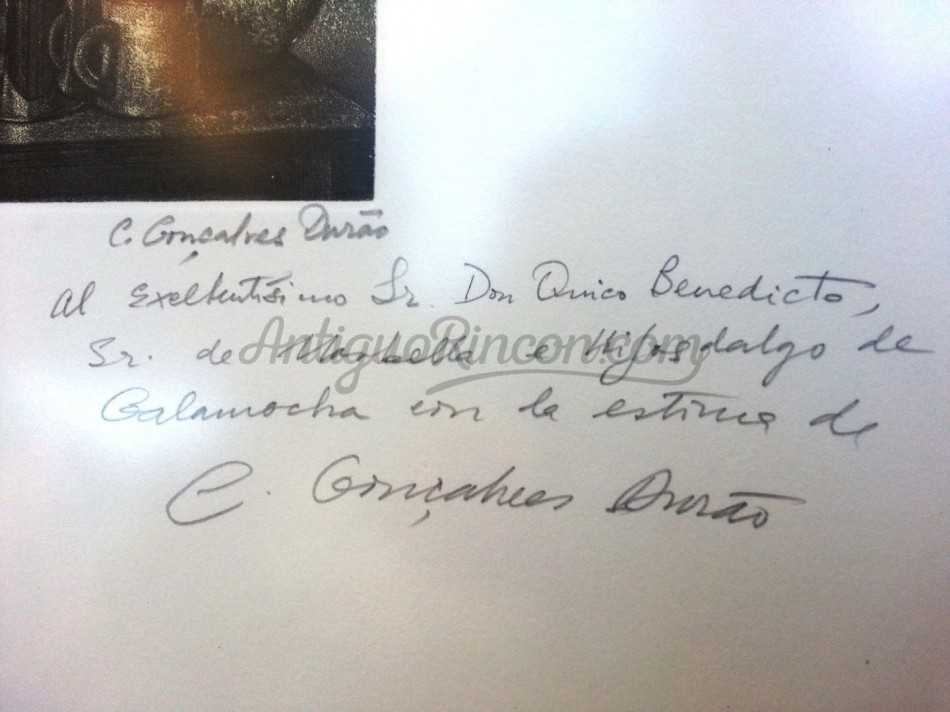 C. Gonçalves Durão
Al Exelentísimo Sr. Don Quico Benedicto,
Sr. de e Hijosdalgo de
Calamocha con la estima de
C. Gonçalves Durão
AntiguoRincon.com